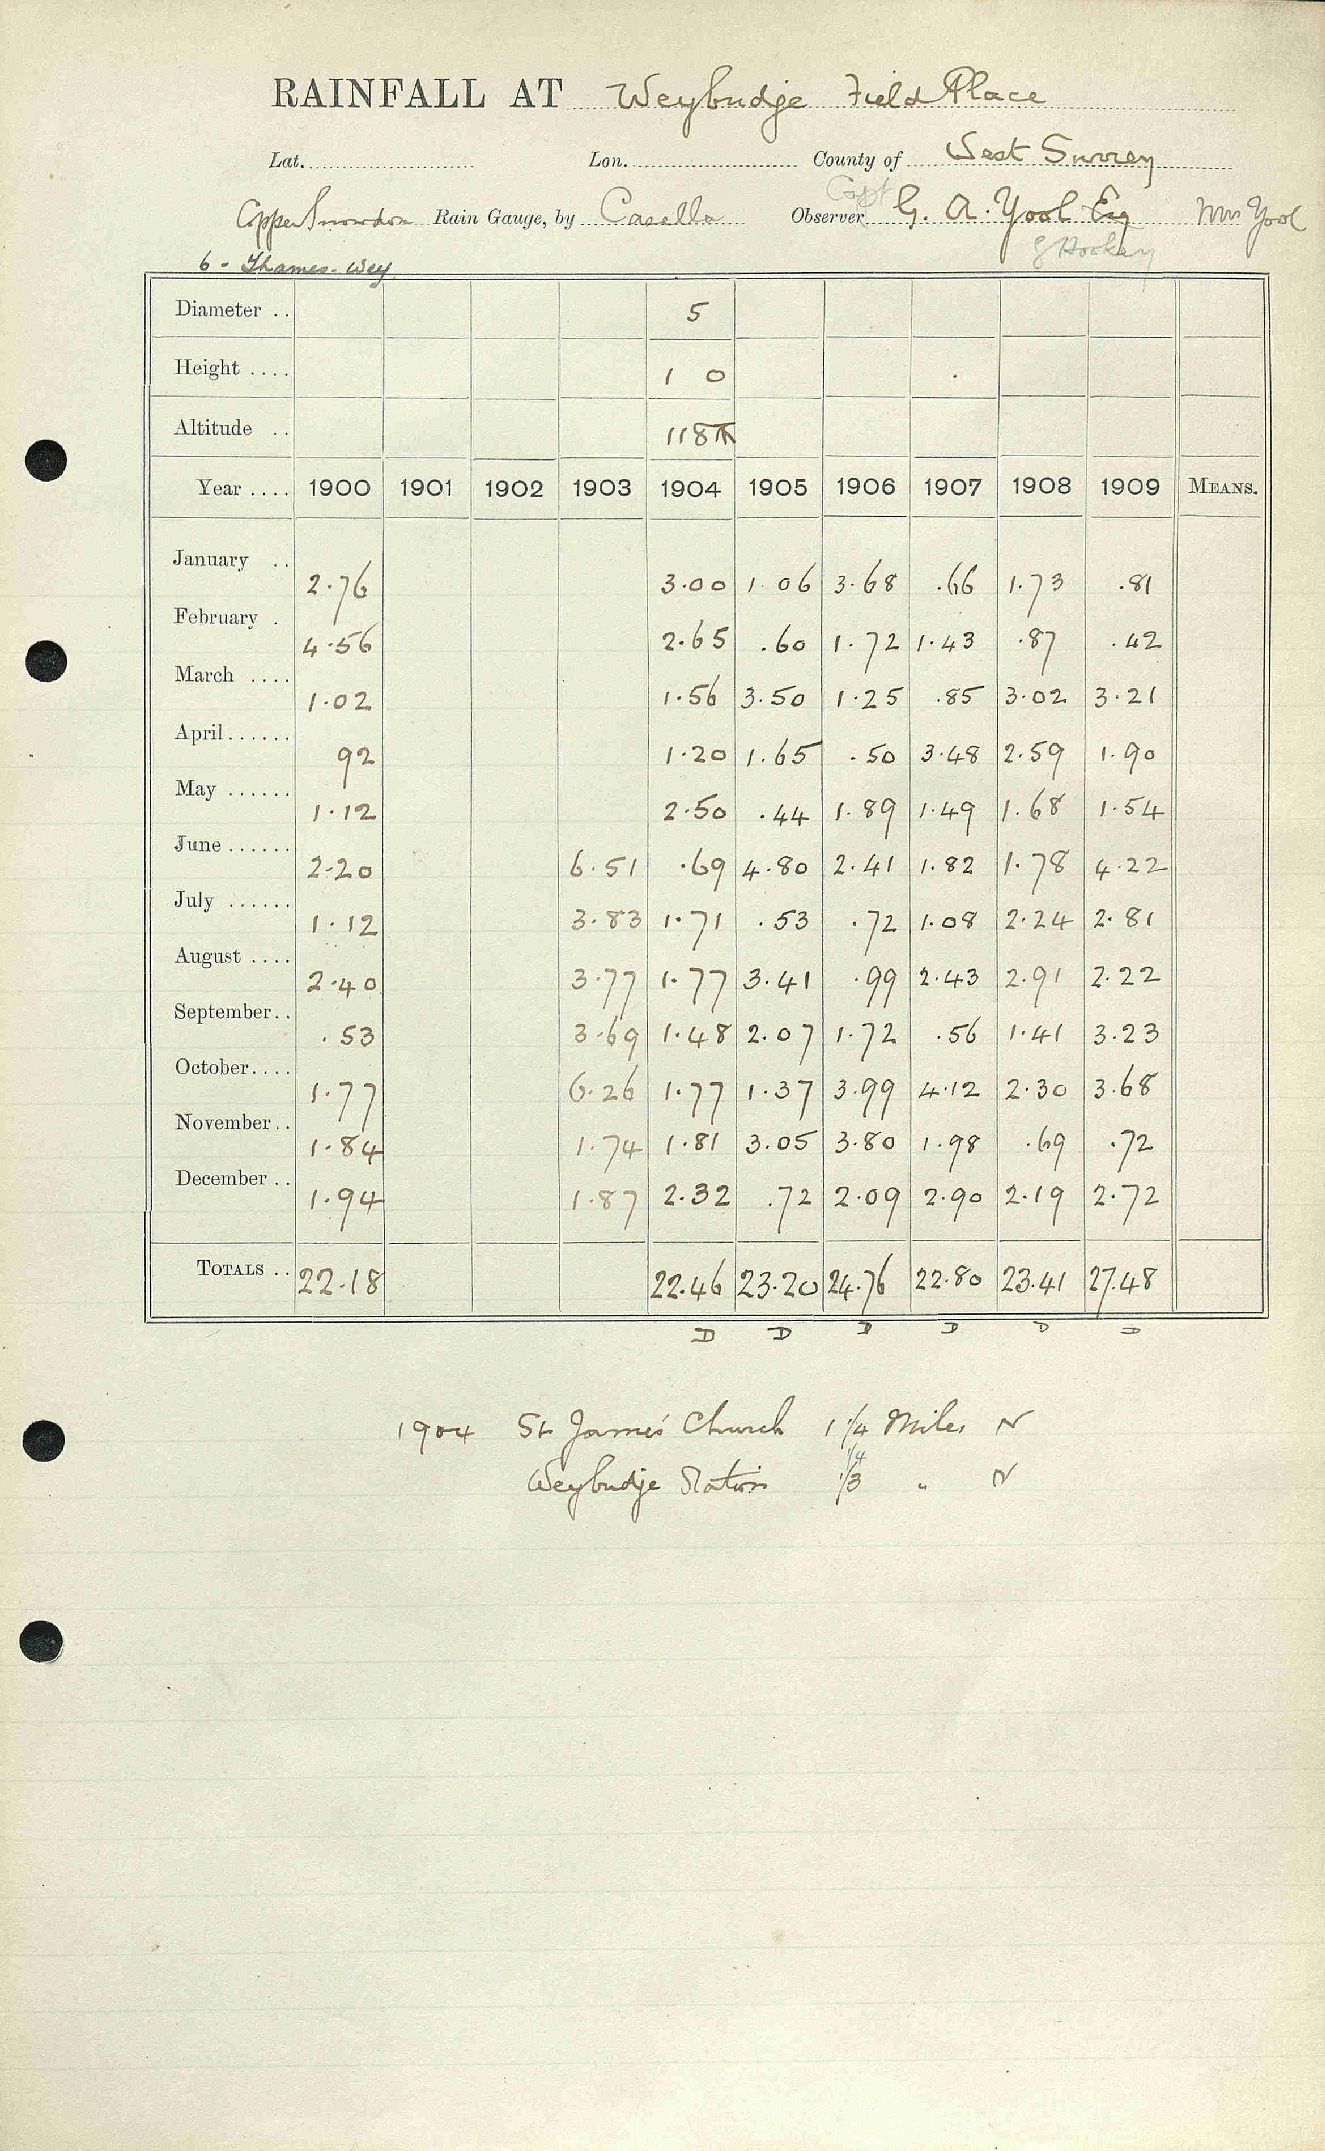 RAINFALL AT Weybridge Field Place
Lat. Lon. County of West Surrey
Copper Snowdon Rain Gauge, by Casella Observer Capt G. A. Yool Esq Mrs Yool
G Hookey
6 - Thames - Wey
Diameter .. 5
Height .... 1 0
Altitude .. 118
Year .... 1900 1901 1902 1903 1904 1905 1906 1907 1908 1909 MEANS.
January .. 2.76 3.00 1.06 3.68 .66 1.73 .81
February . 4.56 2.65 .60 1.72 1.43 .87 .42
March .... 1.02 1.56 3.50 1.25 .85 3.02 3.21
April ...... 92 1.20 1.65 .50 3.48 2.59 1.90
May ...... 1.12 2.50 .44 1.89 1.49 1.68 1.54
June ...... 2.20 6.51 .69 4.80 2.41 1.82 1.78 4.22
July ...... 1.12 3.83 1.71 .53 .72 1.08 2.24 2.81
August .... 2.40 3.77 1.77 3.41 .99 2.43 2.91 2.22
September .. .53 3.69 1.48 2.07 1.72 .56 1.41 3.23
October .... 1.77 6.26 1.77 1.37 3.99 4.12 2.30 3.68
November .. 1.84 1.74 1.81 3.05 3.80 1.98 .69 .72
December .. 1.94 1.87 2.32 .72 2.09 2.90 2.19 2.72
TOTALS .. 22.18 22.46 23.20 24.76 22.80 23.41 27.48
D D D D D D
1904 St James' Church 1 1/4 Miles N
1/4
Weybridge Station 1/3 " N